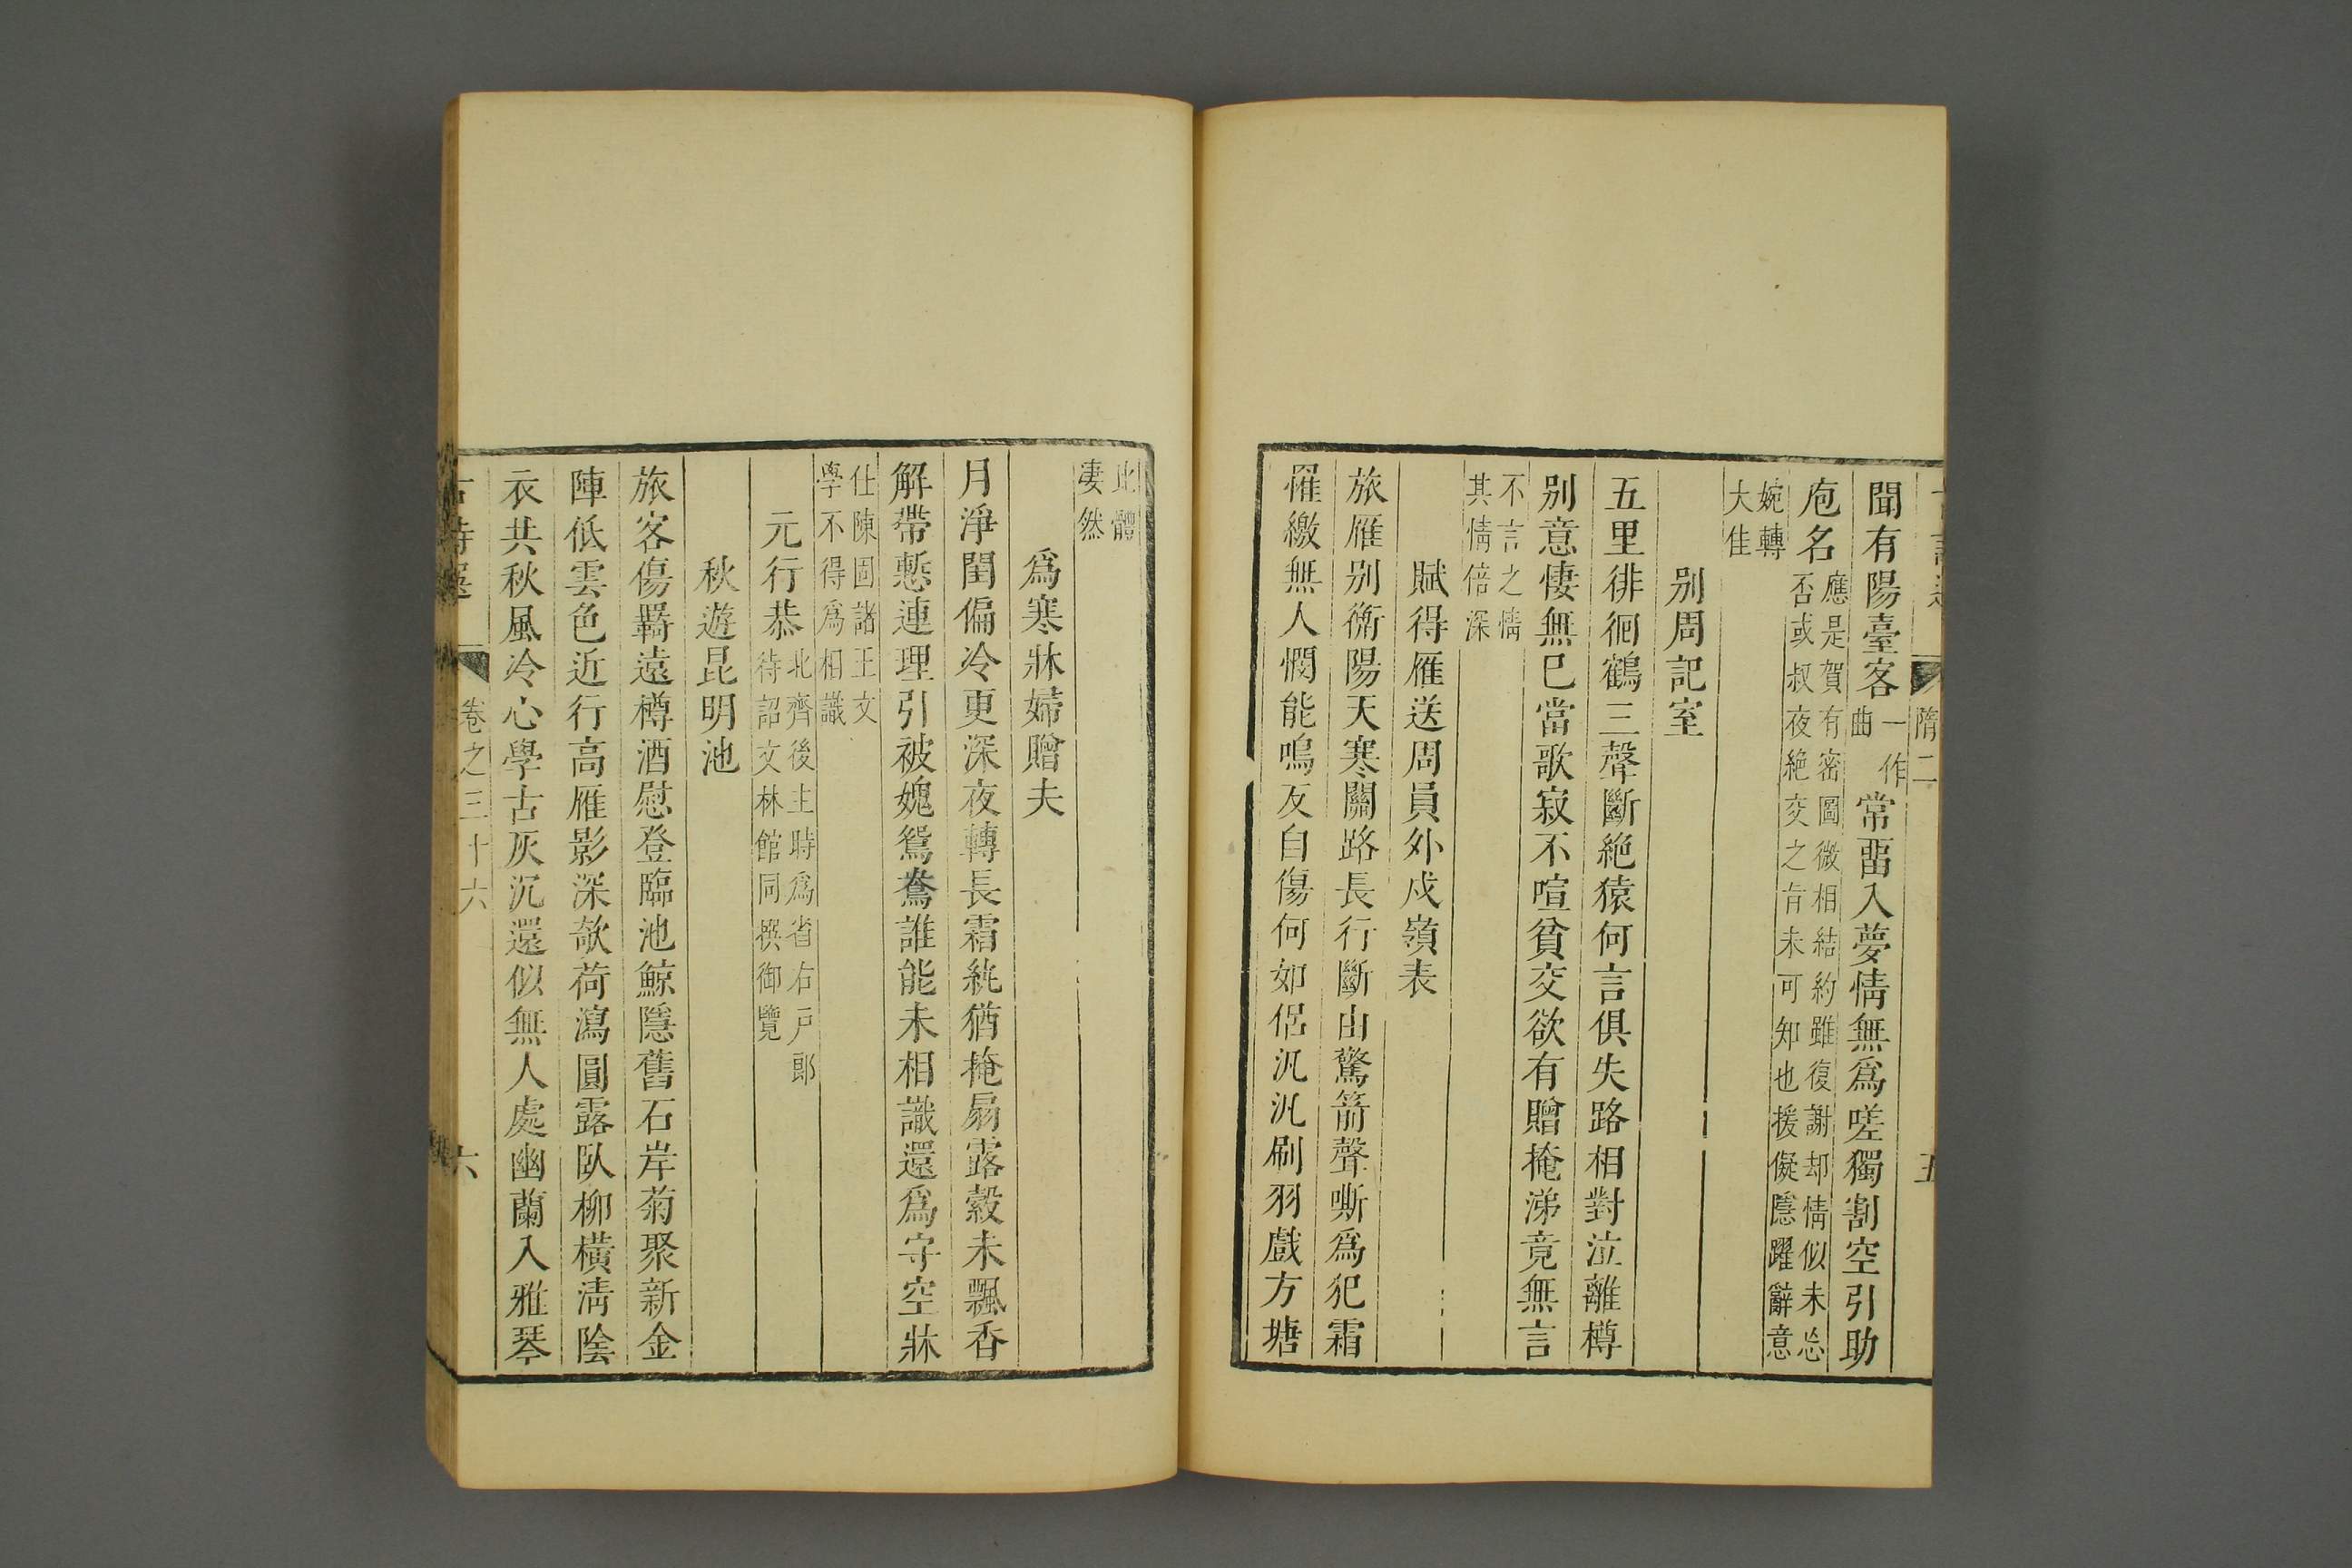 隋二
五
聞有陽臺客一作曲常畱入夢情無爲嗟獨割空引助
庖名應是賀有密圖微相結約雖復謝却情似未忘否或叔夜絶交之旨未可知也援儗隱躍辭意
婉轉大佳
别周記室
五里徘徊鶴三聲斷絶猿何言俱失路相對泣離樽
别意悽無已當歌寂不喧貧交欲有贈掩涕竟無言
不言之情其情倍深
賦得雁送周員外戍嶺表
旅雁别衡陽天寒關路長行斷由驚箭聲嘶爲犯霜
罹繳無人憫能鳴反自傷何如侶汎汎刷羽戲方塘
此體淒然
爲寒牀婦贈夫
月淨閨偏冷更深夜轉長霜絖猶掩扇露縠未飄香
解帶慙連理引被媿鴛鴦誰能未相識還爲守空牀
仕陳固諸王文學不得爲相識
元行恭北齊後主時爲省右戸郎待詔文林館同撰御覽
秋遊昆明池
旅客傷羇遠樽酒慰登臨池鯨隱舊石岸菊聚新金
陣低雲色近行高雁影深欹荷瀉圓露臥柳横清陰
衣共秋風冷心學古灰沉還似無人處幽蘭入雅琴
古詩選
卷之三十六
六